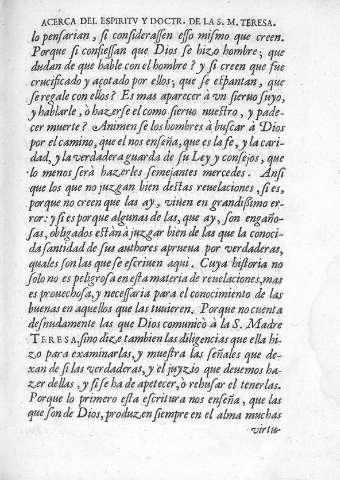 ACERCA DEL ESPIRITV Y DOCTR. DE LA S. M. TERESA.
lo pensarian, si considerassen esso mismo que creen.
Porque si confiessan que Dios se hizo hombre; que
dudan de que hable con el hombre? y si creen que fue
crucificado y açotado por ellos; que se espantan, que
se regale con ellos? Es mas aparecer à vn sieruo suyo,
y hablarle, ò hazerse el como sieruo nuestro, y pade-
cer muerte? Animense los hombres à buscar à Dios
por el camino, que el nos enseña, que es la fe, y la cari-
dad, y la verdadera guarda de su Ley y consejos, que
lo menos serà hazerles semejantes mercedes. Ansi
que los que no juzgan bien destas reuelaciones, si es,
porque no creen que las ay, viuen en grandissimo er-
ror: y si es por que algunas de las, que ay, son engaño-
sas, obligados estàn à juzgar bien de las que la conoci-
da santidad de sus authores aprueua por verdaderas,
quales son las que se escriuen aqui. Cuya historia no
solo no es peligrosa en esta materia de reuelaciones, mas
es prouechosa, y necessaria para el conocimiento de las
buenas en aquellos que las tuuieren. Porque no cuenta
desnudamente las que Dios comunicò à la S. Madre
TERESA, sino dize tambien las diligencias que ella hi-
zo para examinarlas, y muestra las señales que de-
xan de si las verdaderas, y el juyzio que deuemos ha-
zer dellas, y si se ha de apetecer, ò rehusar el tenerlas.
Porque lo primero esta escritura nos enseña, que las
que son de Dios, produzen siempre en el alma muchas
virtu-